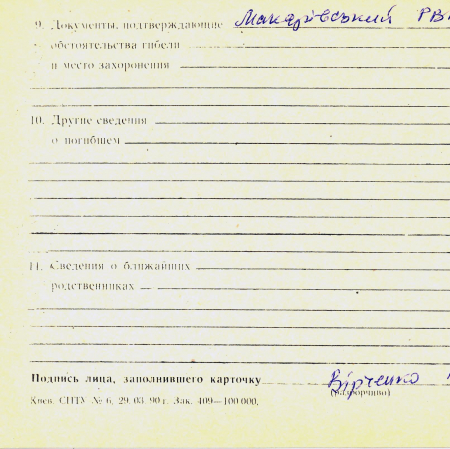 9. Документы, подтверждающие Макарівський РВ
обстоятельства гибели
и место захоронения
10. Другие сведения
о погибшем
11. Сведения о ближайших
родственниках
Подпись лица, заполнившего карточку Вірченко
(разборчиво)
Киев. СПТУ № 6, 29. 03. 90 г. Зак. 409—100 000.